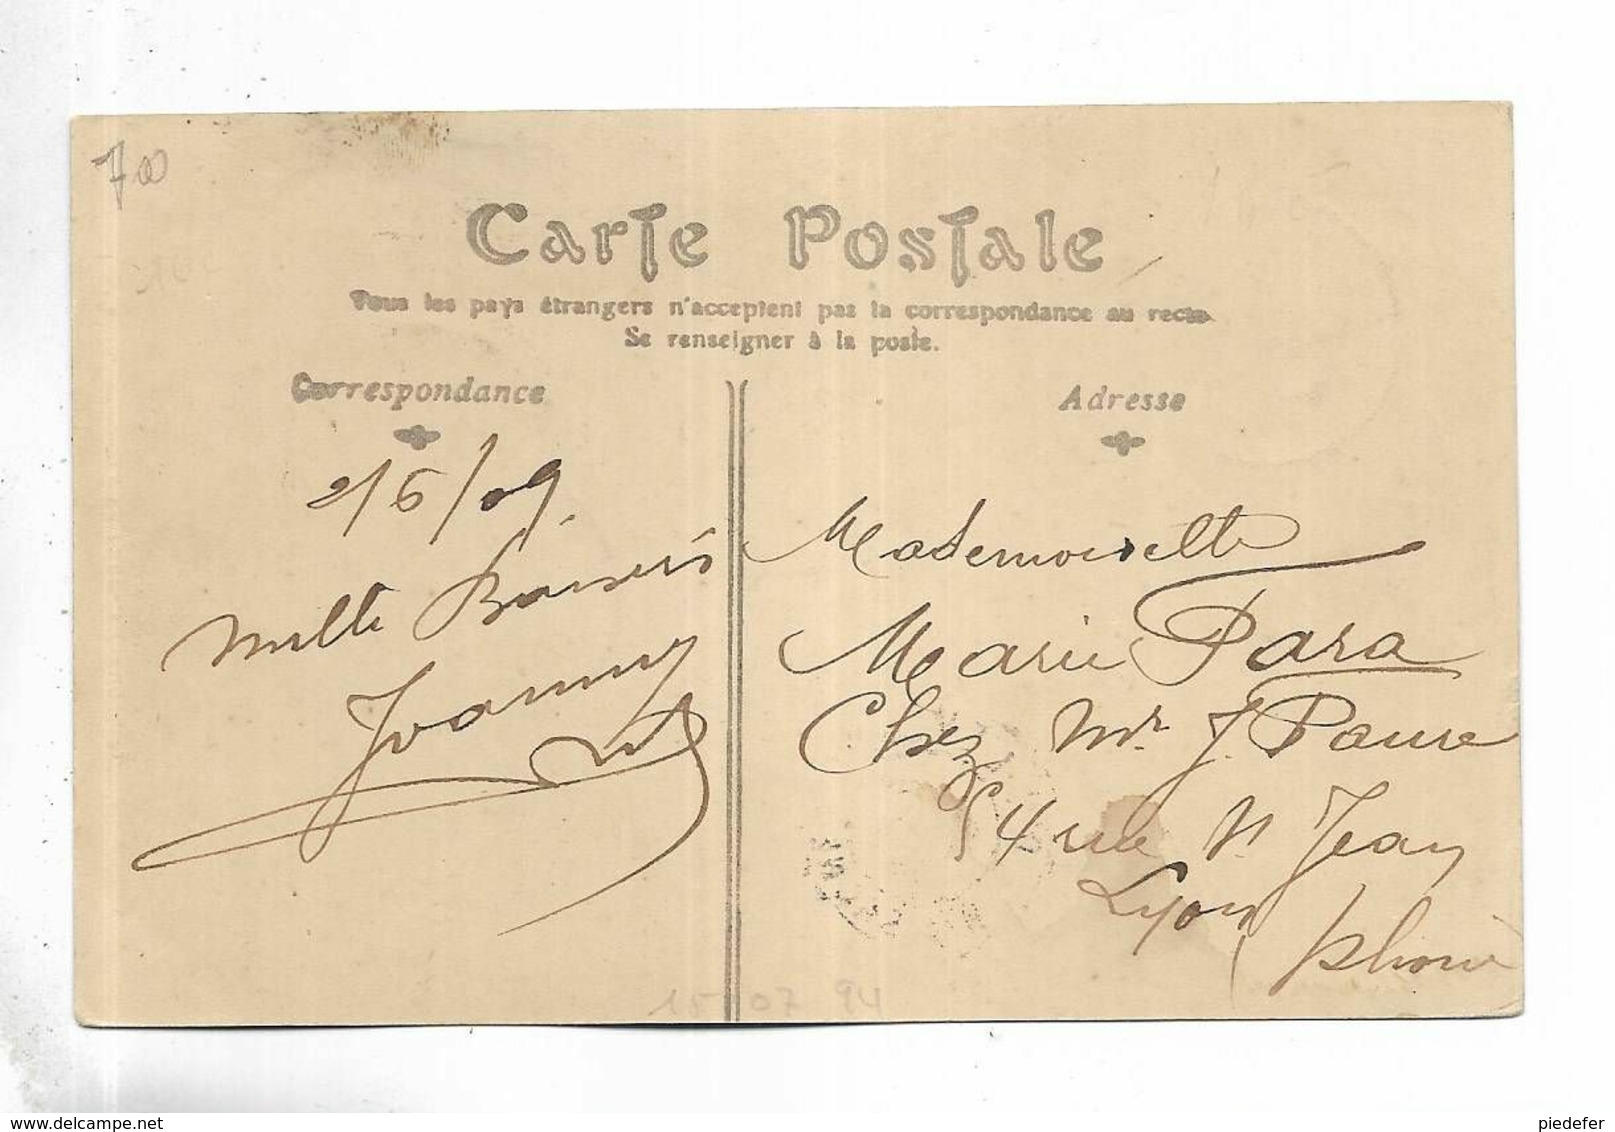 700
Carte Postale
Tous les pays étrangers n'acceptent pas la correspondance au recto
Se renseigner à la poste.
Correspondance
2/6/09.
Mille Baisers
Joanny
Adresse
Mademoiselle
Marie Para
Chez Mr J. Paure
54 rue St Jean
Lyon
Rhône
15 07 94
delcampe.net
piedefer